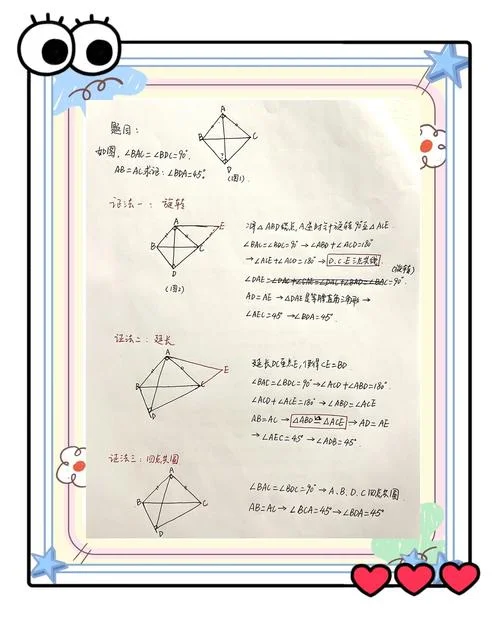 题目:
如图,∠BAC=∠BDC=90°,
AB=AC 求证:∠BDA=45°
A
B
C
D
(图1)
证法一:旋转
A
E
B
C
D
(图2)
将△ABD绕点A逆时针旋转90°至△ACE
∠BAC=∠BDC=90°→∠ABD+∠ACD=180°
→∠ACE+∠ACD=180°→D.C.E三点共线.
(旋转)
∠DAE=∠DAC+∠CAE=∠DAC+∠BAD=∠BAC=90°.
AD=AE→△DAE是等腰直角三角形→
∠AEC=45°→∠BDA=45°.
证法二:延长
A
E
B
C
D
延长DC至点E,使得CE=BD.
∠BAC=∠BDC=90°→∠ACD+∠ABD=180°.
∠ACD+∠ACE=180°→∠ABD=∠ACE
AB=AC→△ABD≌△ACE→AD=AE
→∠AEC=45°→∠ADB=45°.
证法三:四点共圆
A
B
C
D
∠BAC=∠BDC=90°→A、B、D、C四点共圆
AB=AC→∠BCA=45°→∠BDA=45°